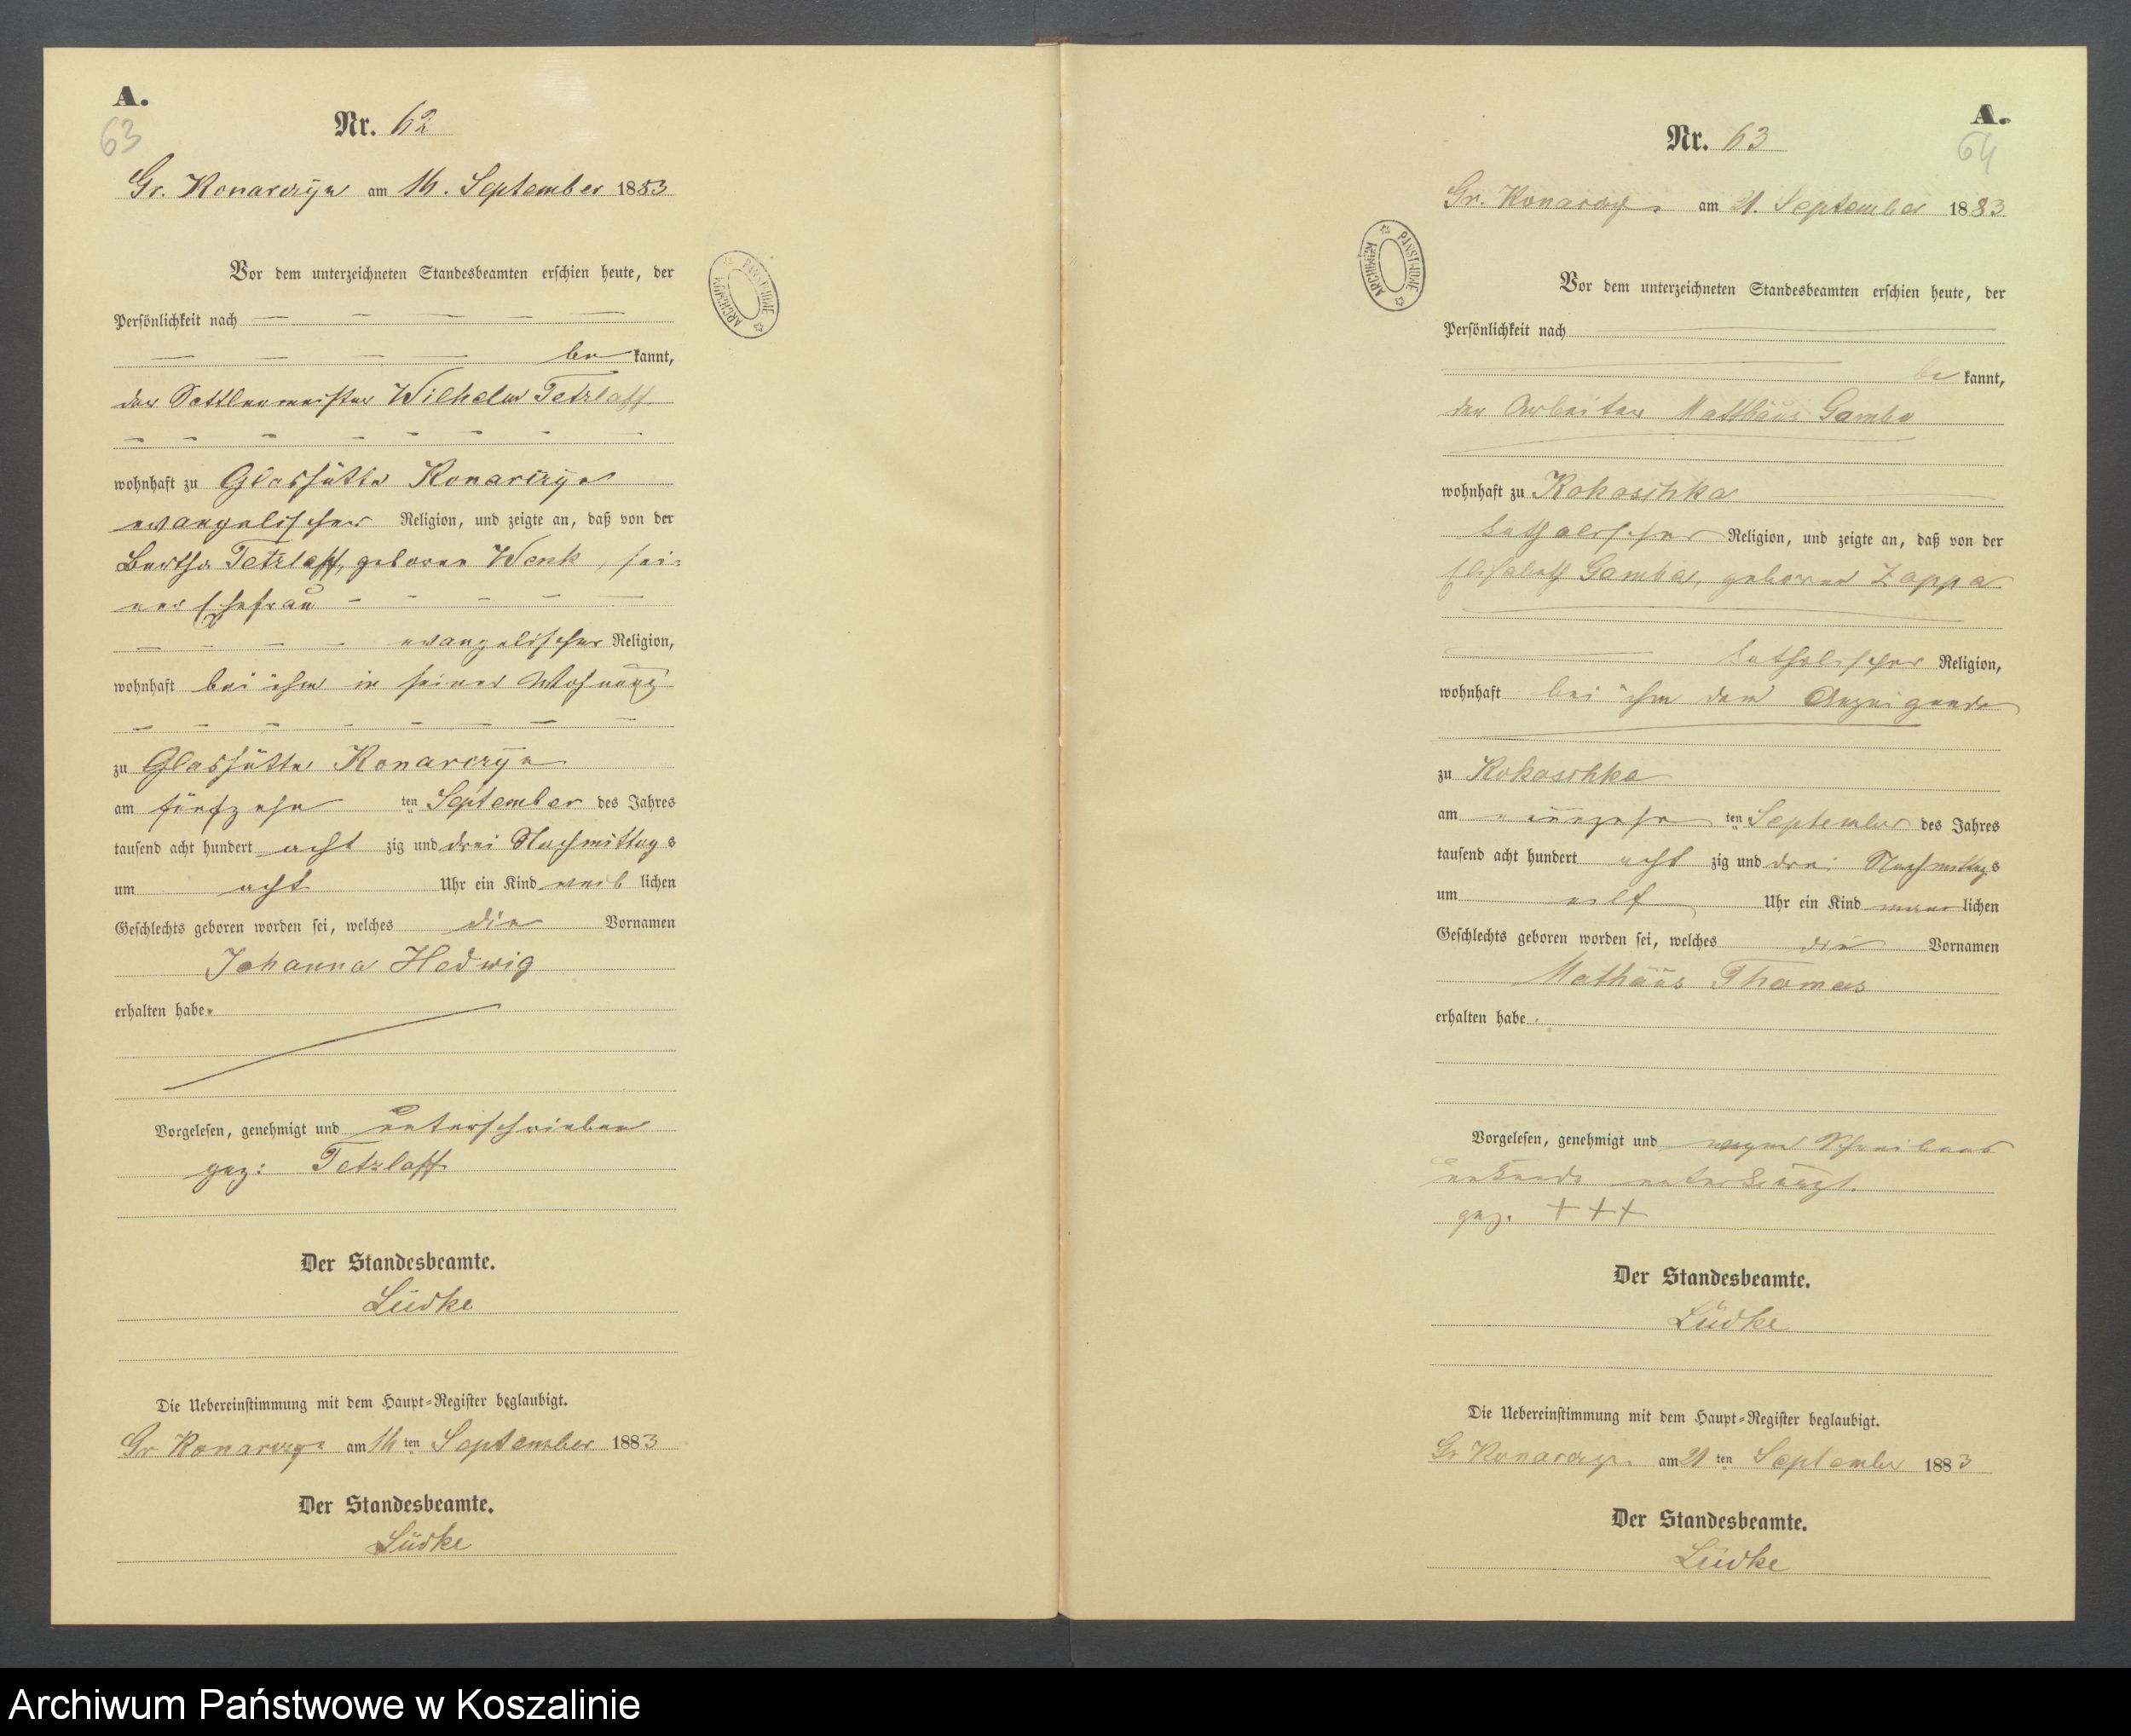 A.
63
Nr. 62
Gr. Konarczyn am 16. September 1883
Vor dem unterzeichneten Standesbeamten erschien heute, der
Persönlichkeit nach
be kannt,
der Sattlermeister Wilhelm Tetzlaff
wohnhaft zu Glashütte Konarczyn
evangelischer Religion, und zeigte an, daß von der
Bertha Tetzlaff, geborene Wenk, sei-
ner Ehefrau
evangelischer Religion,
wohnhaft bei ihm in seiner Wohnung
zu Glashütte Konarczyn
am fünfzehn ten September des Jahres
tausend acht hundert acht zig und drei Nachmittags
um acht Uhr ein Kind weib lichen
Geschlechts geboren worden sei, welches die Vornamen
Johanna Hedwig
erhalten habe.
Vorgelesen, genehmigt und unterschrieben
gez: Tetzlaff
Der Standesbeamte.
Lüdke
Die Uebereinstimmung mit dem Haupt-Register beglaubigt.
Gr Konarczyn am 16 ten September 1883
Der Standesbeamte.
Lüdke
ARCHIWUM PAŃSTWOWE
A.
64
Nr. 63
Gr. Konarczyn am 21. September 1883
ARCHIWUM PAŃSTWOWE
Vor dem unterzeichneten Standesbeamten erschien heute, der
Persönlichkeit nach
be kannt,
der Arbeiter Matthäus Gamba
wohnhaft zu Kokoschka
katholischer Religion, und zeigte an, daß von der
Elisabeth Gamba, geborene Zappa
katholischer Religion,
wohnhaft bei ihm dem Anzeigende
zu Kokoschka
am neunzehn ten September des Jahres
tausend acht hundert acht zig und drei Nachmittags
um elf Uhr ein Kind männ lichen
Geschlechts geboren worden sei, welches die Vornamen
Mathäus Thomas
erhalten habe.
Vorgelesen, genehmigt und wegen Schreibens
unkunde unterkreuzt.
gez. +++
Der Standesbeamte.
Lüdke
Die Uebereinstimmung mit dem Haupt-Register beglaubigt.
Gr Konarczyn am 21 ten September 1883
Der Standesbeamte.
Lüdke
Archiwum Państwowe w Koszalinie